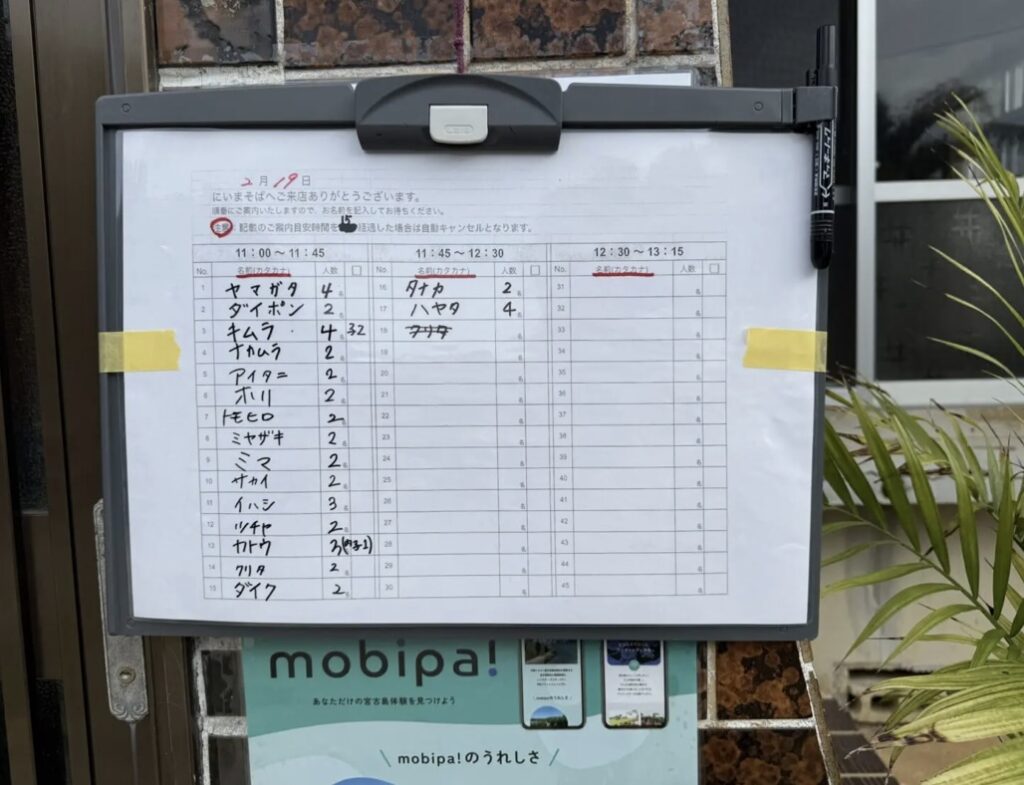 2月19日
にいまそばへご来店ありがとうございます。
順番にご案内いたしますので、お名前を記入してお待ちください。
注意 : 記載のご案内目安時間を15経過した場合は自動キャンセルとなります。
11:00 〜 11:45 11:45 〜 12:30 12:30 〜 13:15
No. 名前(カタカナ) 人数 □ No. 名前(カタカナ) 人数 □ No. 名前(カタカナ) 人数 □
1 ヤマガタ 4名 16 タナカ 2名 31 名
2 ダイポン 2名 17 ハヤタ 4名 32 名
3 キムラ 4名 32 18 クリタ 名 33 名
4 ナカムラ 2名 19 名 34 名
5 アイタニ 2名 20 名 35 名
6 ホリ 2名 21 名 36 名
7 トモヒロ 2名 22 名 37 名
8 ミヤザキ 2名 23 名 38 名
9 ミマ 2名 24 名 39 名
10 サカイ 2名 25 名 40 名
11 イハシ 3名 26 名 41 名
12 ツチヤ 2名 27 名 42 名
13 カトウ 3 28 名 43 名
14 クリタ 2名 29 名 44 名
15 ダイク 2名 30 名 45 名
mobipa!
あなただけの宮古島体験を見つけよう
mobipa!のうれしさ